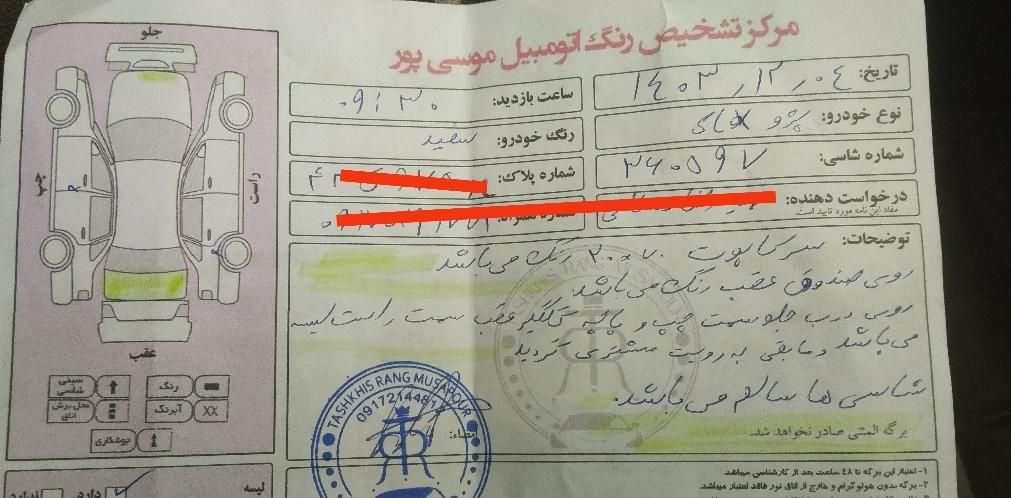 مرکز تشخیص رنگ اتومبیل موسی پور
تاریخ: ۱۴۰۳/۱۲/۰۴
ساعت بازدید: ۰۹:۳۰
نوع خودرو: پژو
رنگ خودرو: سفید
شماره شاسی: ۳۶۰۵۹۷
شماره پلاک:
درخواست دهنده:
مفاد این نامه مورد تایید است
توضیحات: سر کاپوت ۲۰،۷۰ رنگ می باشد
روی صندوق عقب رنگ می باشد
روی درب جلو سمت چپ و پایه گلگیر عقب سمت راست لیسه
می باشد و مابقی به رویت مشتری گردید
شاسی ها سالم می باشد.
برگه المثنی صادر نخواهد شد.
امضاء:
TASHKHIS RANG MUSAPOUR
۱- اعتبار این برگه تا ۴۸ ساعت بعد از کارشناسی میباشد.
۲- برگه بدون هولوگرام و خارج از اتاق نور فاقد اعتبار میباشد.
جلو
چپ
راست
عقب
رنگ
سینی شاسی
XX آبرنگ
محل برش اتاق
جوشکاری
لیسه
دارد
ندارد